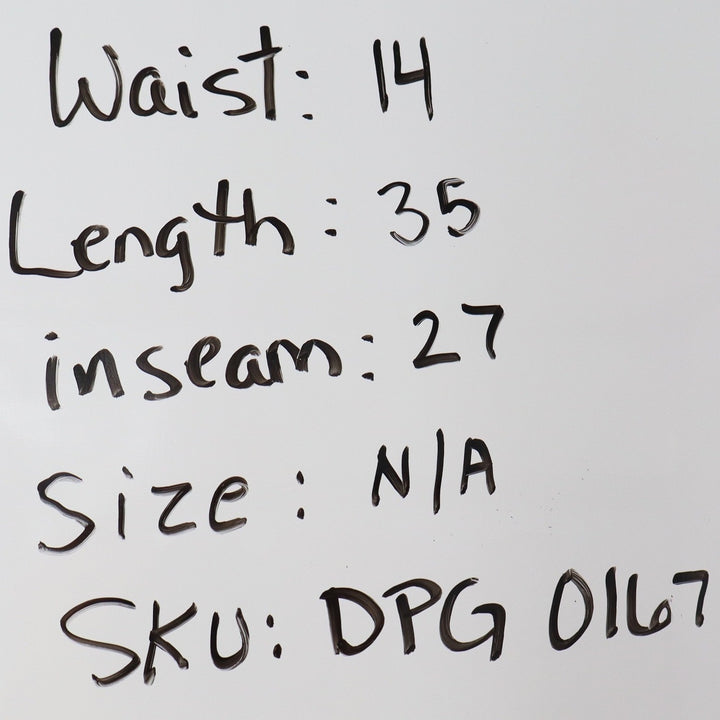 Waist: 14
Length: 35
inseam: 27
Size: N/A
SKU: DPG 0167